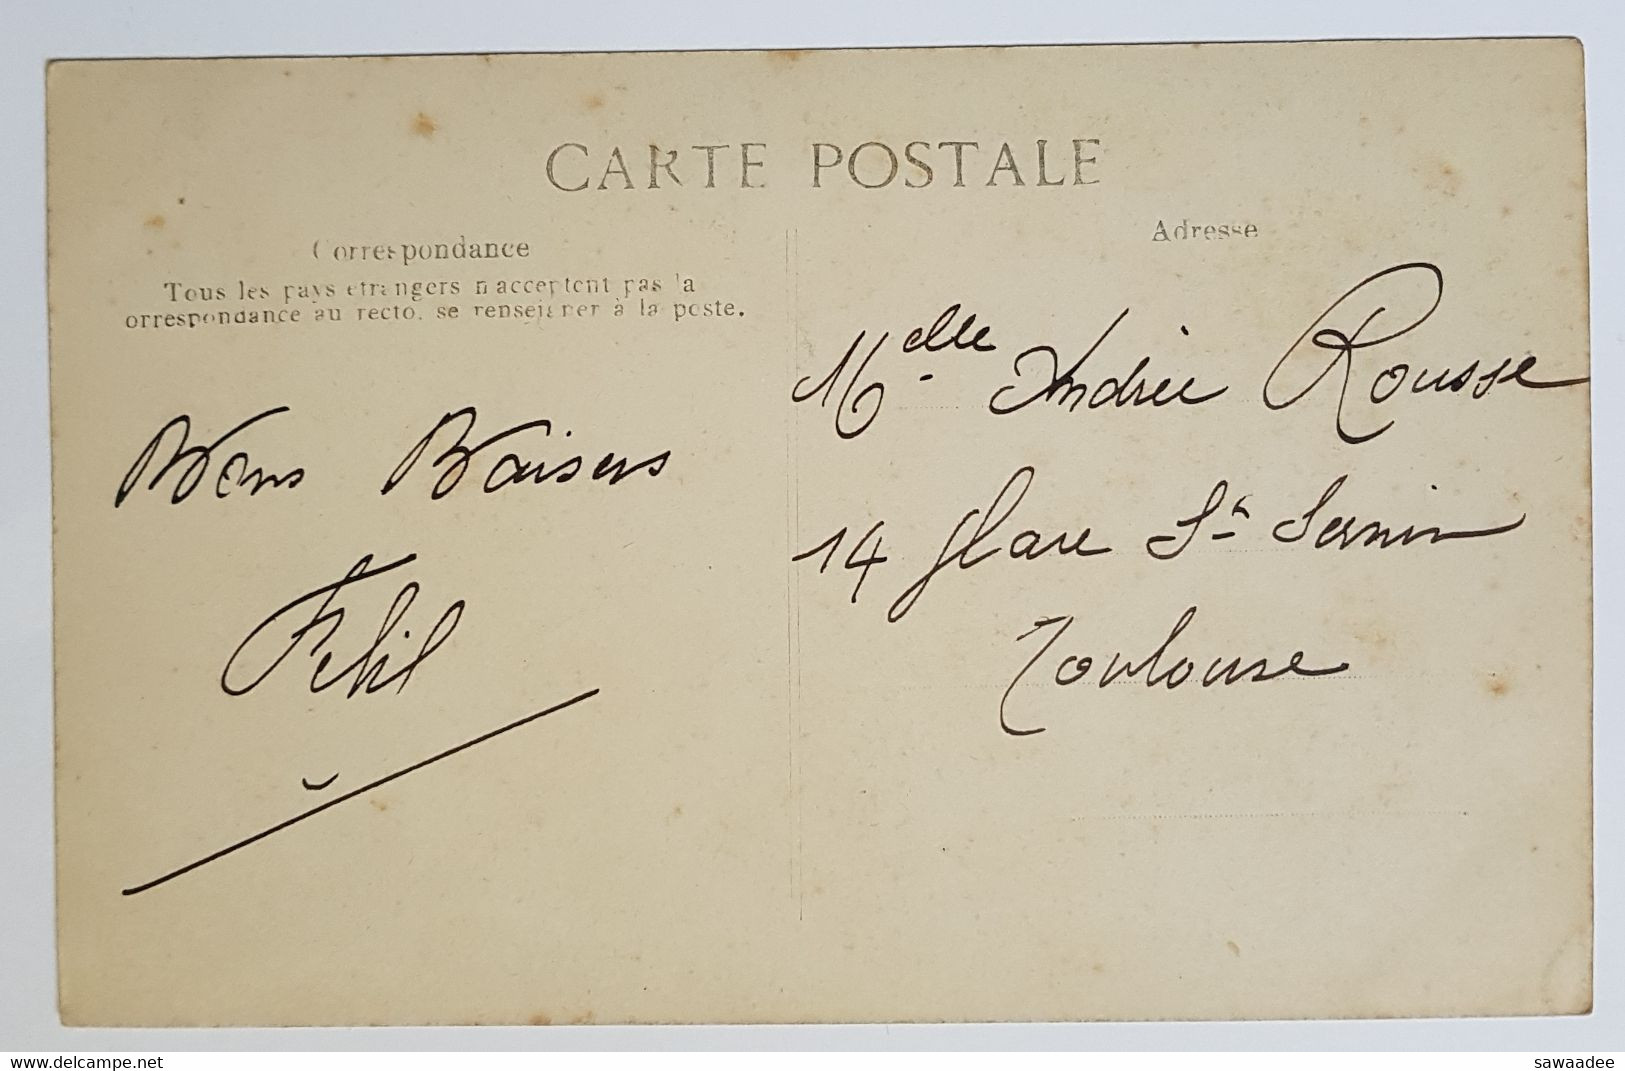 CARTE POSTALE
Correspondance
Tous les pays étrangers n'acceptent pas la
correspondance au recto, se renseigner à la poste.
Bons Baisers
Adresse
Melle Andrée Rousse
14 place St Sernin
Toulouse
www.delcampe.net
sawaadee